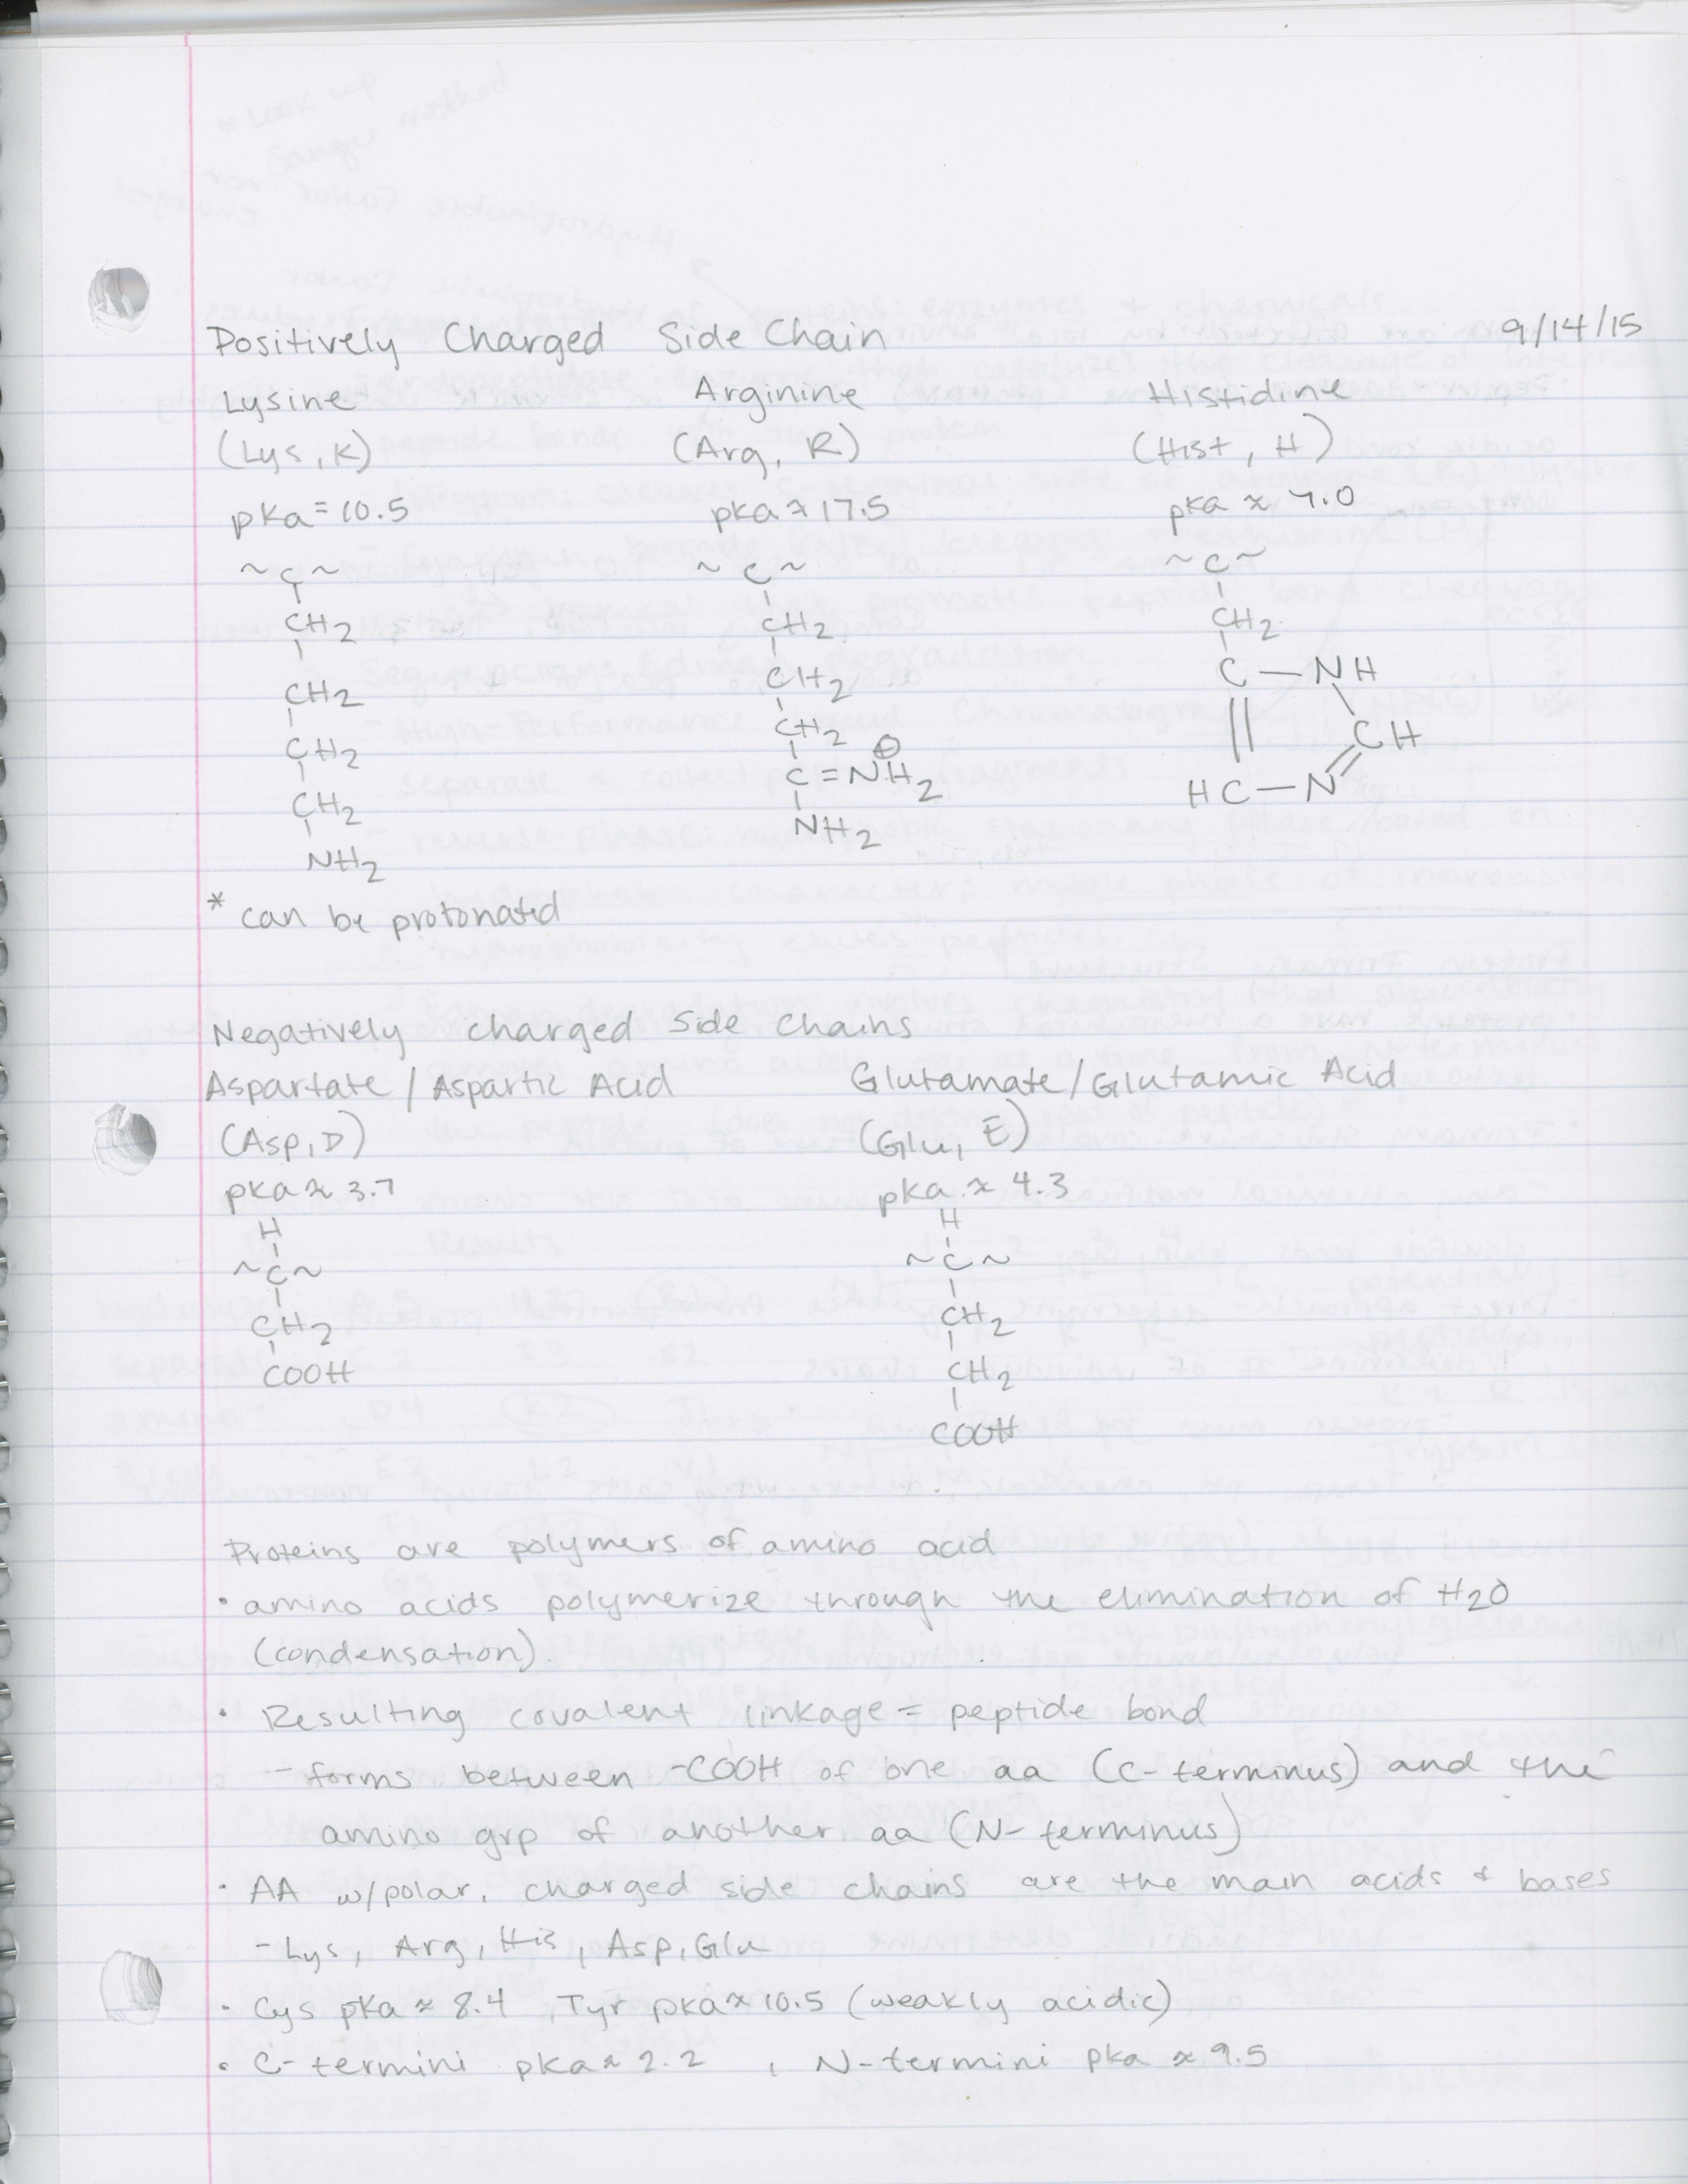 Positively Charged Side Chain 9/14/15
Lysine Arginine Histidine
(Lys, K) (Arg, R) (Hist, H)
pka = 10.5 pka ≈ 17.5 pka ≈ 7.0
~C~ ~C~ ~C~
CH2 CH2 CH2
CH2 CH2 C — NH
CH2 CH2 CH
CH2 C=NH2 ⊕ HC — N
NH2 NH2
* can be protonated
Negatively charged Side Chains
Aspartate / Aspartic Acid Glutamate/Glutamic Acid
(Asp, D) (Glu, E)
pka ≈ 3.7 pka ≈ 4.3
H H
~C~ ~C~
CH2 CH2
COOH CH2
COOH
Proteins are polymers of amino acid
• amino acids polymerize through the elimination of H2O
(condensation).
• Resulting covalent linkage = peptide bond
- forms between -COOH of one aa (C-terminus) and the
amino grp of another aa (N-terminus)
• AA w/polar, charged side chains are the main acids + bases
- Lys, Arg, His, Asp, Glu
• Cys pka ≈ 8.4, Tyr pka ≈ 10.5 (weakly acidic)
• C-termini pka ≈ 2.2, N-termini pka ≈ 9.5